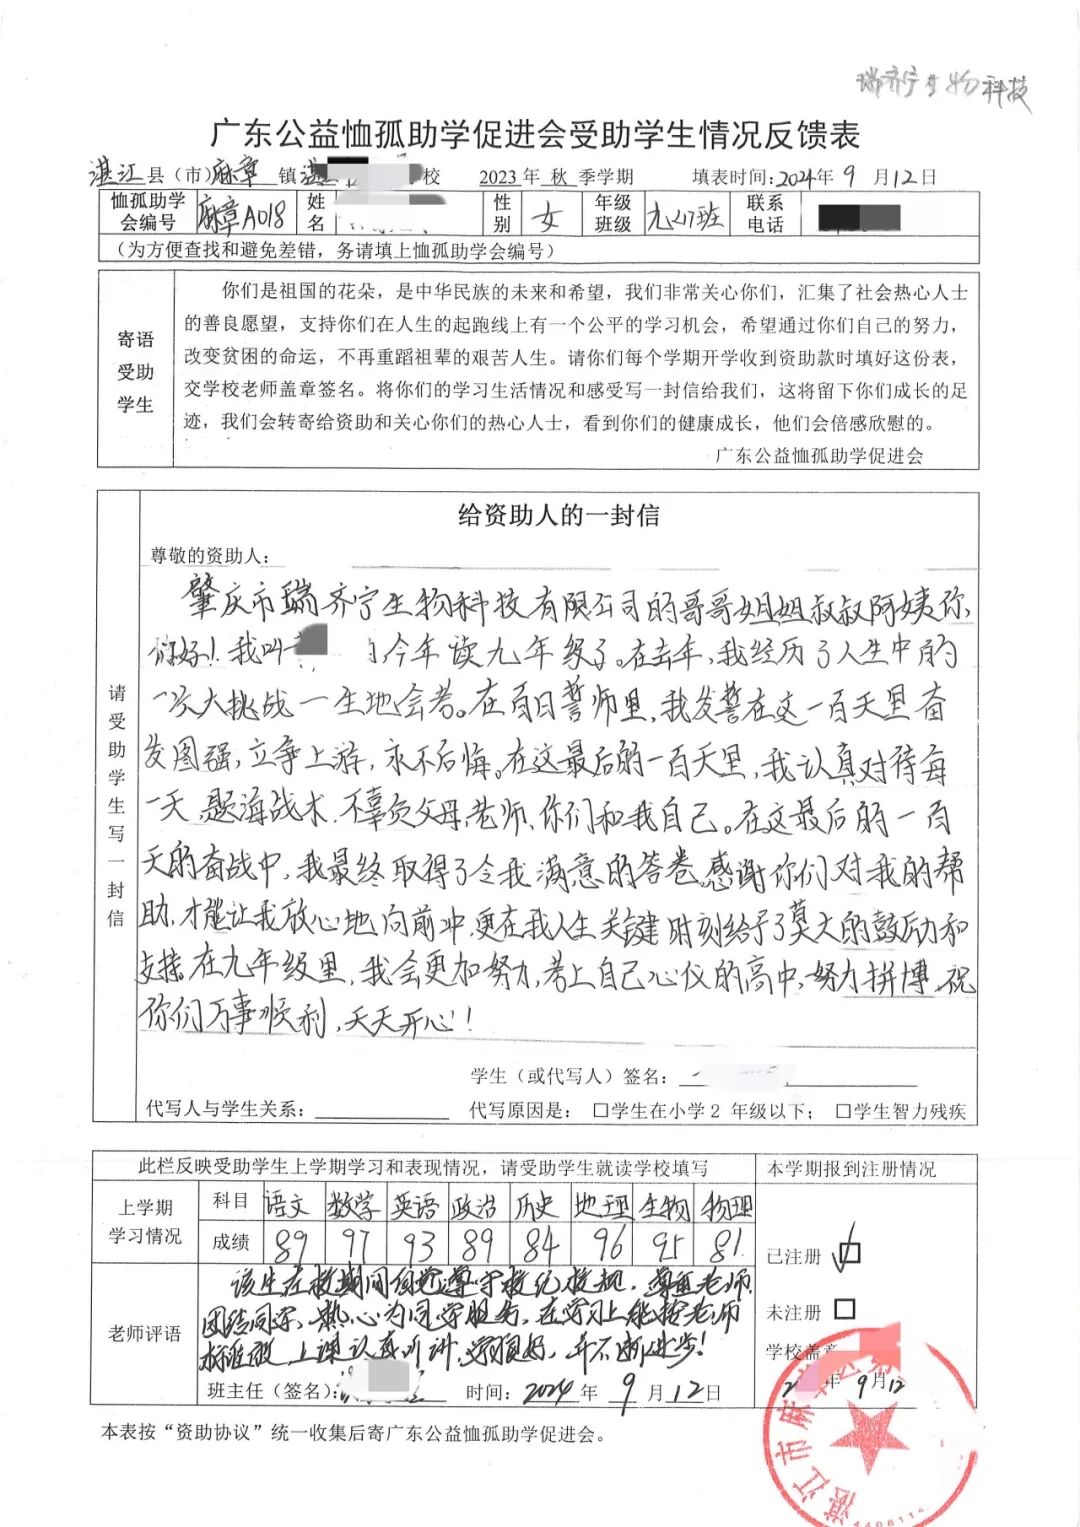 瑞齐宁生物科技
广东公益恤孤助学促进会受助学生情况反馈表
湛江县（市）麻章 镇 湛 校 2023年 秋 季学期 填表时间:2024年 9 月12日
恤孤助学会编号 麻章A018 姓名 性别 女 年级班级 九(1)班 联系电话
（为方便查找和避免差错，务请填上恤孤助学会编号）
寄语受助学生
你们是祖国的花朵，是中华民族的未来和希望，我们非常关心你们，汇集了社会热心人士
的善良愿望，支持你们在人生的起跑线上有一个公平的学习机会，希望通过你们自己的努力，
改变贫困的命运，不再重蹈祖辈的艰苦人生。请你们每个学期开学收到资助款时填好这份表，
交学校老师盖章签名。将你们的学习生活情况和感受写一封信给我们，这将留下你们成长的足
迹，我们会转寄给资助和关心你们的热心人士，看到你们的健康成长，他们会倍感欣慰的。
广东公益恤孤助学促进会
请受助学生写一封信
给资助人的一封信
尊敬的资助人：
肇庆市瑞齐宁生物科技有限公司的哥哥姐姐叔叔阿姨你
们好！我叫 ，今年读九年级了。在去年，我经历了人生中的
一次大挑战一生地会考。在百日誓师里，我发誓在这一百天里奋
发图强，立争上游，永不后悔。在这最后的一百天里，我认真对待每
一天，题海战术，不辜负父母、老师、你们和我自己。在这最后的一百
天的奋战中，我最终取得了令我满意的答卷。感谢你们对我的帮
助，才能让我放心地向前冲，更在我人生关键时刻给予了莫大的鼓励和
支持。在九年级里，我会更加努力，考上自己心仪的高中，努力拼博。祝
你们万事顺利，天天开心！
学生（或代写人）签名：
代写人与学生关系： 代写原因是：□学生在小学2 年级以下；□学生智力残疾
此栏反映受助学生上学期学习和表现情况，请受助学生就读学校填写 本学期报到注册情况
上学期学习情况
科目 语文 数学 英语 政治 历史 地理 生物 物理
成绩 89 97 93 89 84 96 95 81
已注册 ☑
未注册 □
学校盖章
2 年 9月12
老师评语
该生在校期间 遵守校纪校规，尊重老师，
团结同学，热心为同学服务，在学习上能按老师
标准做，上课认真听讲，学习良好，并不断进步！
班主任（签名）： 时间：2024 年 9 月 12 日
本表按“资助协议”统一收集后寄广东公益恤孤助学促进会。
湛江市麻章区